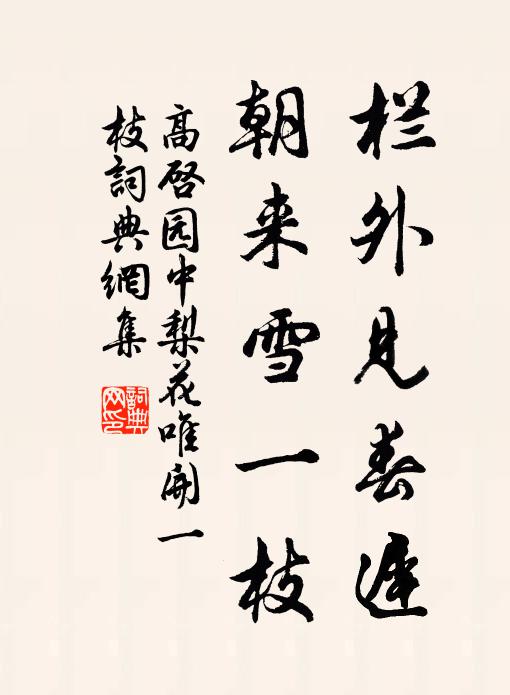 栏外见春遲
朝来雪一枝
高启园中梨花唯開一
枝詞典網集
詞典
网印